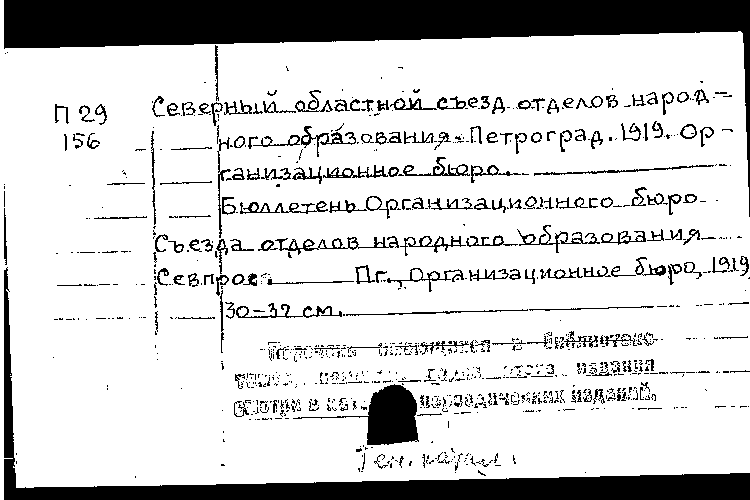 П 29
156
Северный областной съезд отделов народ-
ного образования. Петроград. 1919. Ор-
ганизационное бюро.
Бюллетень Организационного бюро
Съезда отделов народного образования
Севпрос. Пг., Организационное бюро, 1919
30-32 см.
Перечень имеющихся в библиотеке
годов этого издания
смотри в кат. периодических изданий.
Ген. катал.